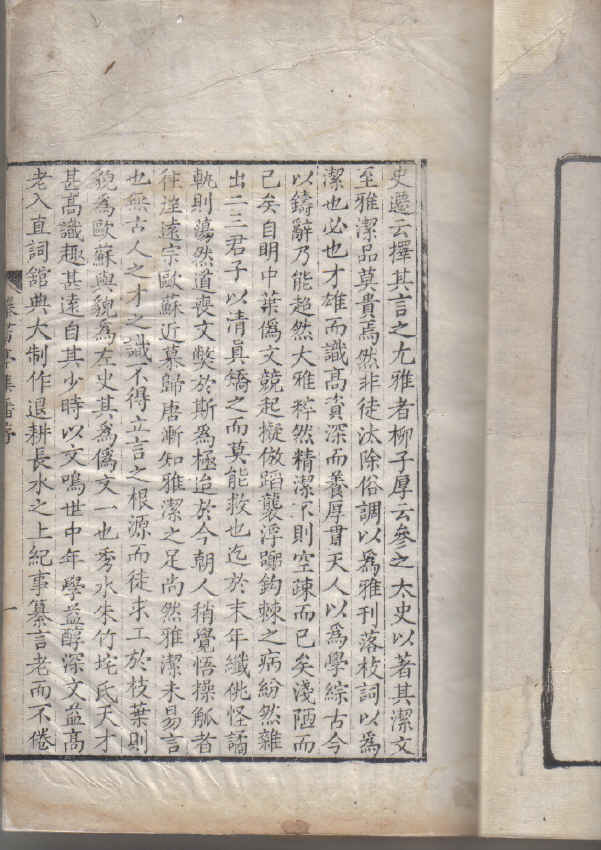 史遷云擇其言之尤雅者柳子厚云參之太史以著其潔文
至雅潔品莫貴焉然非徒汰除俗調以爲雅刊落枝詞以爲
潔也必也才雄而識高資深而養厚貫天人以爲學綜古今
以鑄辭乃能超然大雅粹然精潔不則空疎而已矣淺陋而
己矣自明中葉僞文競起擬倣蹈襲浮囂鉤棘之病紛然雜
出二三君子以清眞矯之而莫能救也迄於末年纖佻怪譎
軌則蕩然道喪文獘於斯爲極迨於今朝人稍覺悟操觚者
往往遠宗歐蘇近慕歸唐漸知雅潔之足尚然雅潔未易言
也無古人之才之識不得立言之根源而徒求工於枝葉則
貌爲歐蘇與貌爲左史其爲僞文一也秀水朱竹垞氏天才
甚高識趣甚遠自其少時以文鳴世中年學益醇深文益高
老入直詞舘典大制作退耕長水之上紀事纂言老而不倦
曝書亭集 序
一